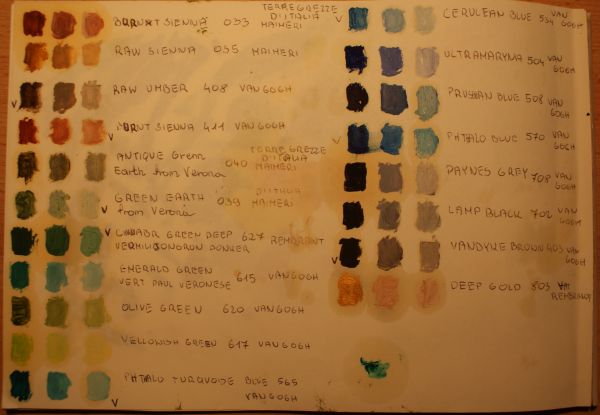 BURNT SIENNA 033 TERRE GREZZE D'ITALIA MAIMERI
RAW SIENNA 035 MAIMERI
RAW UMBER 408 VAN GOGH
BURNT SIENNA 411 VAN GOGH
ANTIQUE Green Earth from Verona 040 TERRE GREZZE D'ITALIA MAIMERI
GREEN EARTH from Verona 039 D'ITALIA MAIMERI
CINNABR GREEN DEEP 627 REMBRANT
VERMILJONGROEN DONKER
EMERALD GREEN
VERT PAUL VERONESE 615 VAN GOGH
OLIVE GREEN 620 VAN GOGH
YELLOWISH GREEN 617 VAN GOGH
PHTALO TURQUOISE BLUE 565
VAN GOGH
CERULEAN BLUE 534 VAN GOGH
ULTRAMARYNA 504 VAN GOGH
PRUSSIAN BLUE 508 VAN GOGH
PHTALO BLUE 570 VAN GOGH
PAYNES GREY 708 VAN GOGH
LAMP BLACK 702 VAN GOGH
VANDYKE BROWN 403 VAN GOGH
DEEP GOLD 803 REMBRANDT